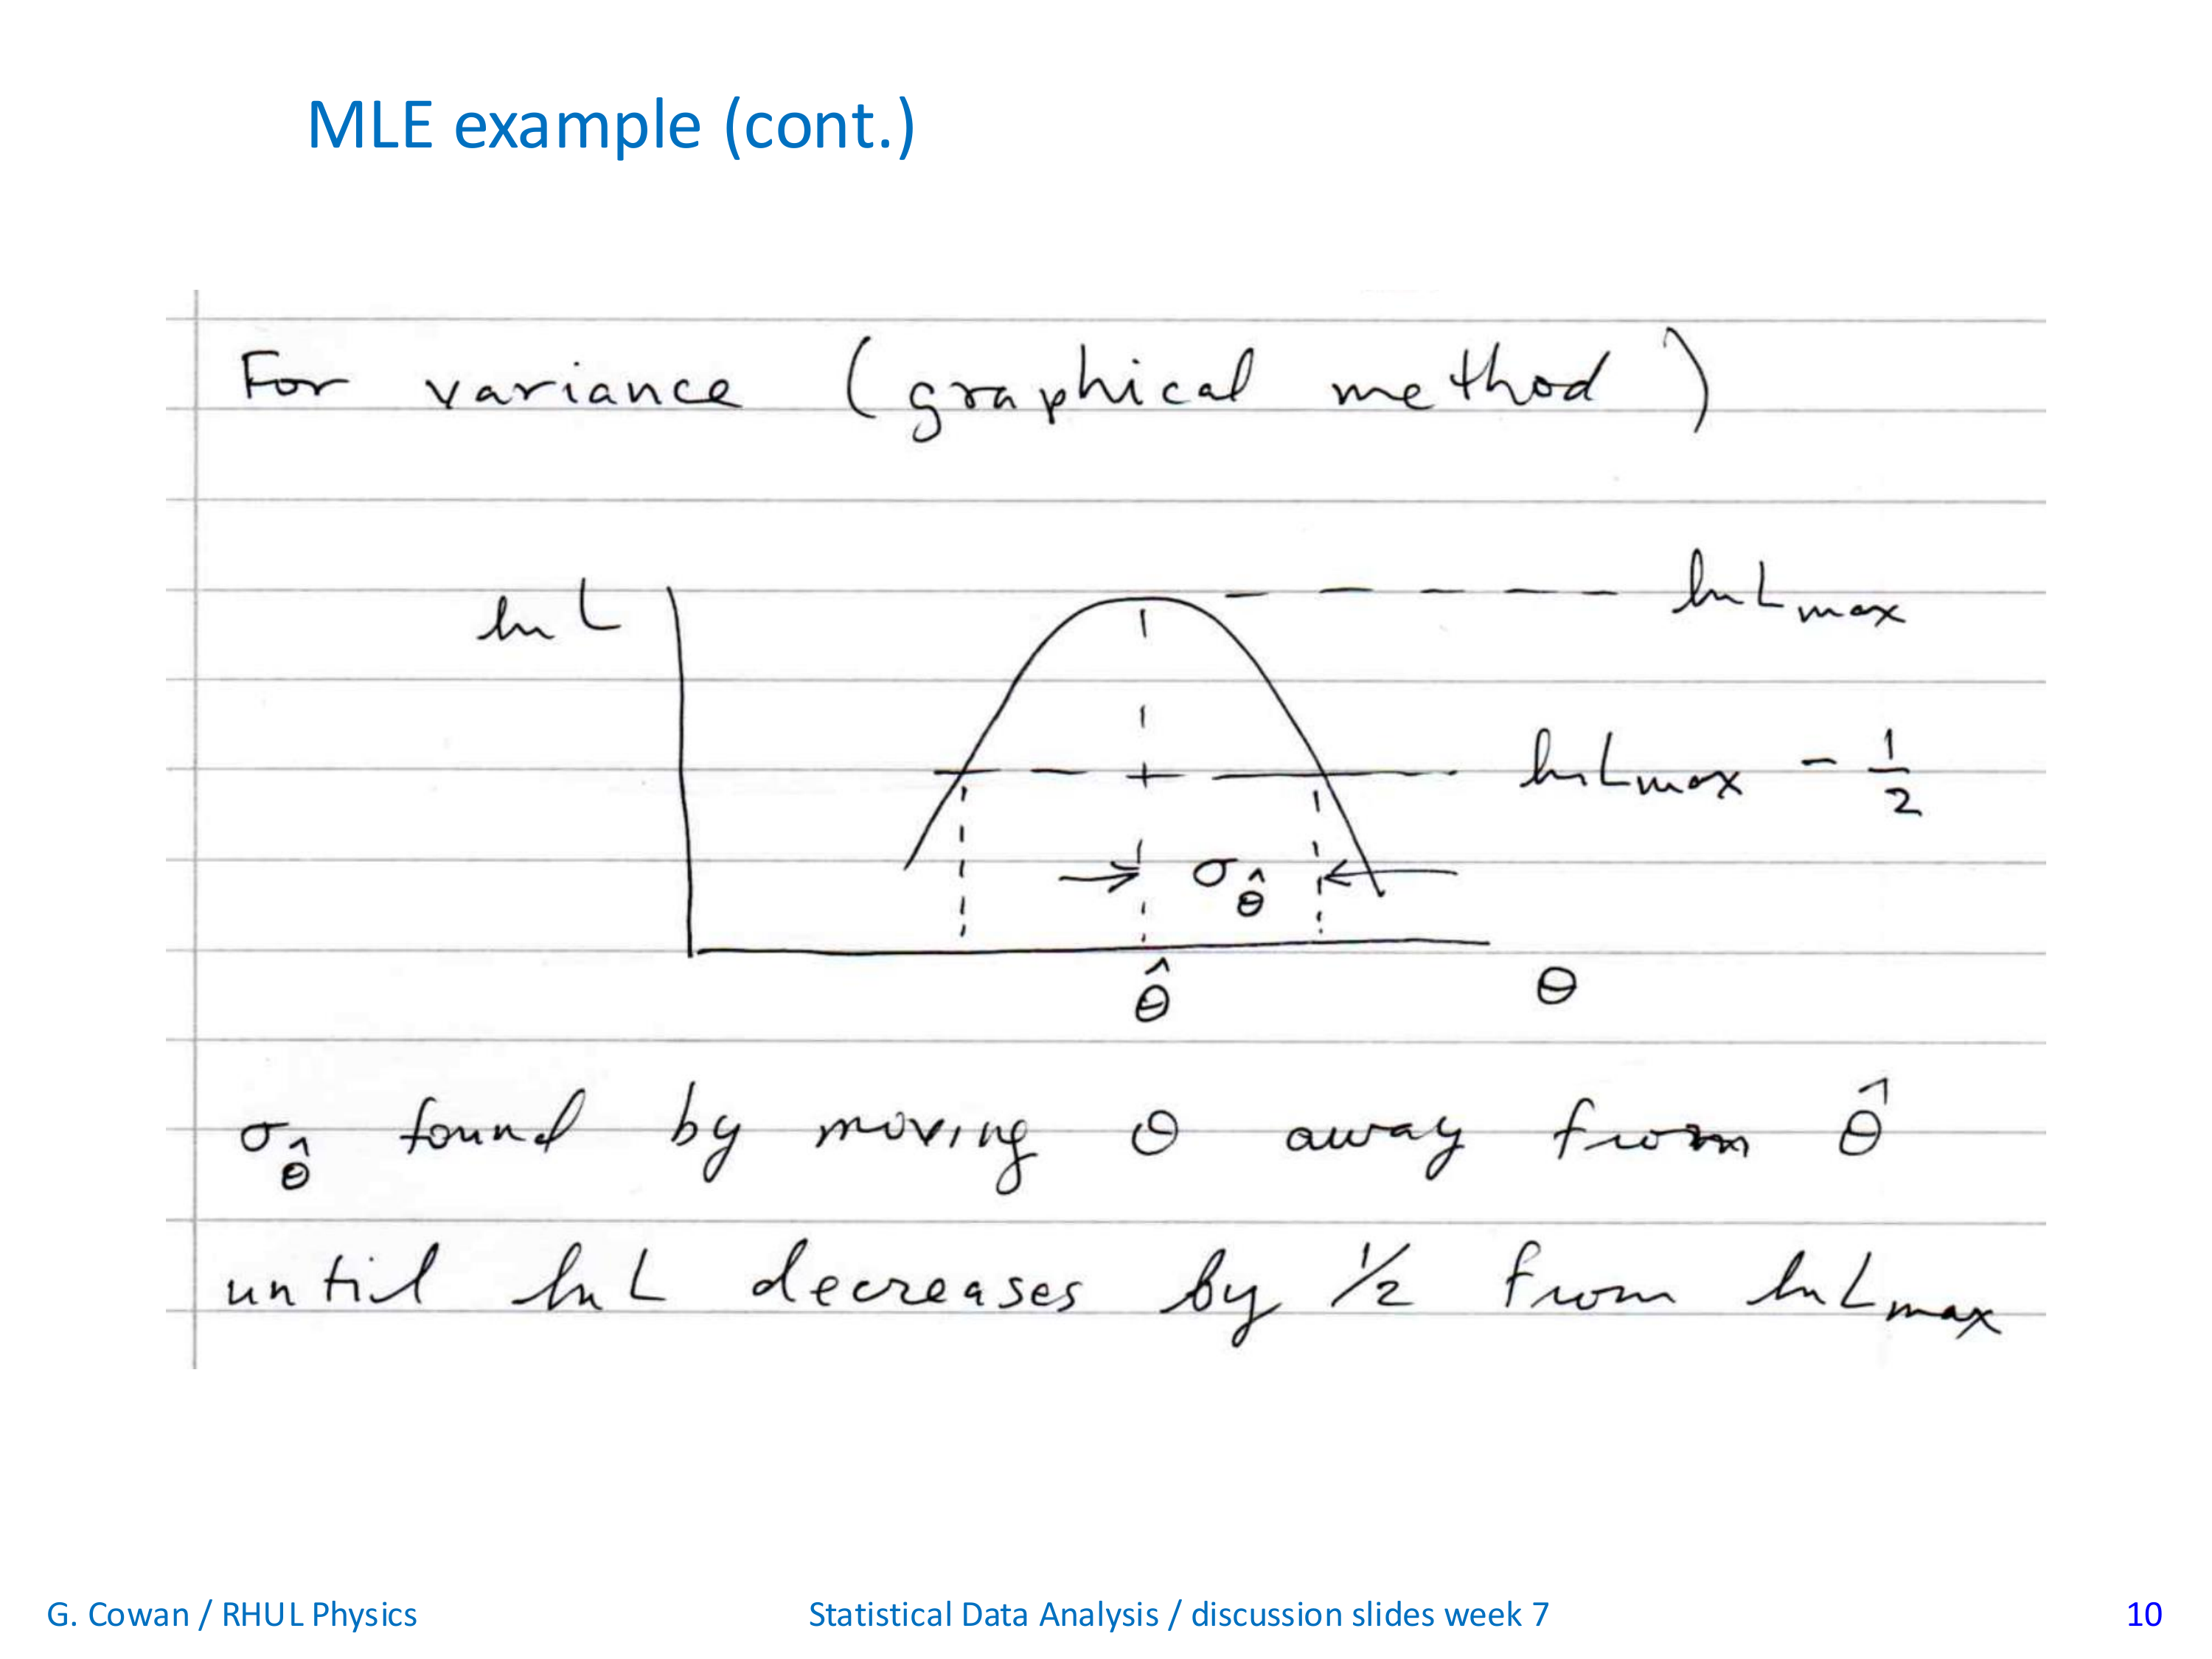 MLE example (cont.)
For variance (graphical method)
ln L
ln L max
ln L max - 1/2
σ θ̂
θ̂
θ
σ θ̂ found by moving θ away from θ̂
until ln L decreases by 1/2 from ln L max
G. Cowan / RHUL Physics
Statistical Data Analysis / discussion slides week 7
10